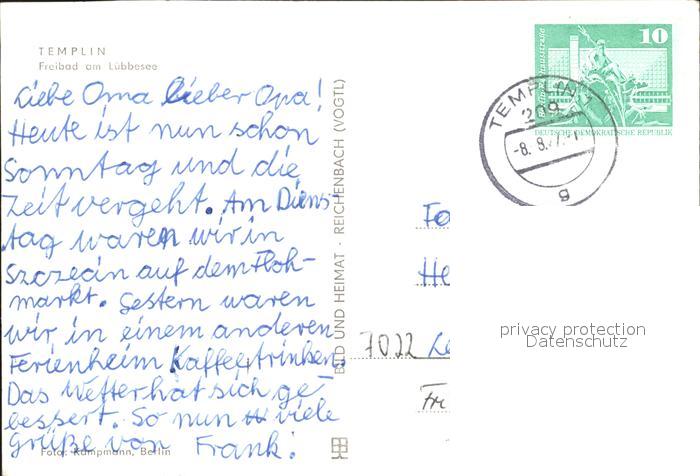 TEMPLIN
Freibad am Lübbesee
Liebe Oma lieber Opa!
Heute ist nun schon
Sonntag und die
Zeit vergeht. Am Diens-
tag waren wir in
Szczecin auf dem Floh-
markt. Gestern waren
wir in einem anderen
Ferienheim Kaffeetrinken.
Das Wetter hat sich ge-
bessert. So nun viele
Grüße von Frank!
Foto: Kampmann, Berlin
BILD UND HEIMAT · REICHENBACH (VOGTL)
10
DEUTSCHE DEMOKRATISCHE REPUBLIK
TEMPLIN 1
209
-8. 8.77.
7022 Le
He
privacy protection
Datenschutz